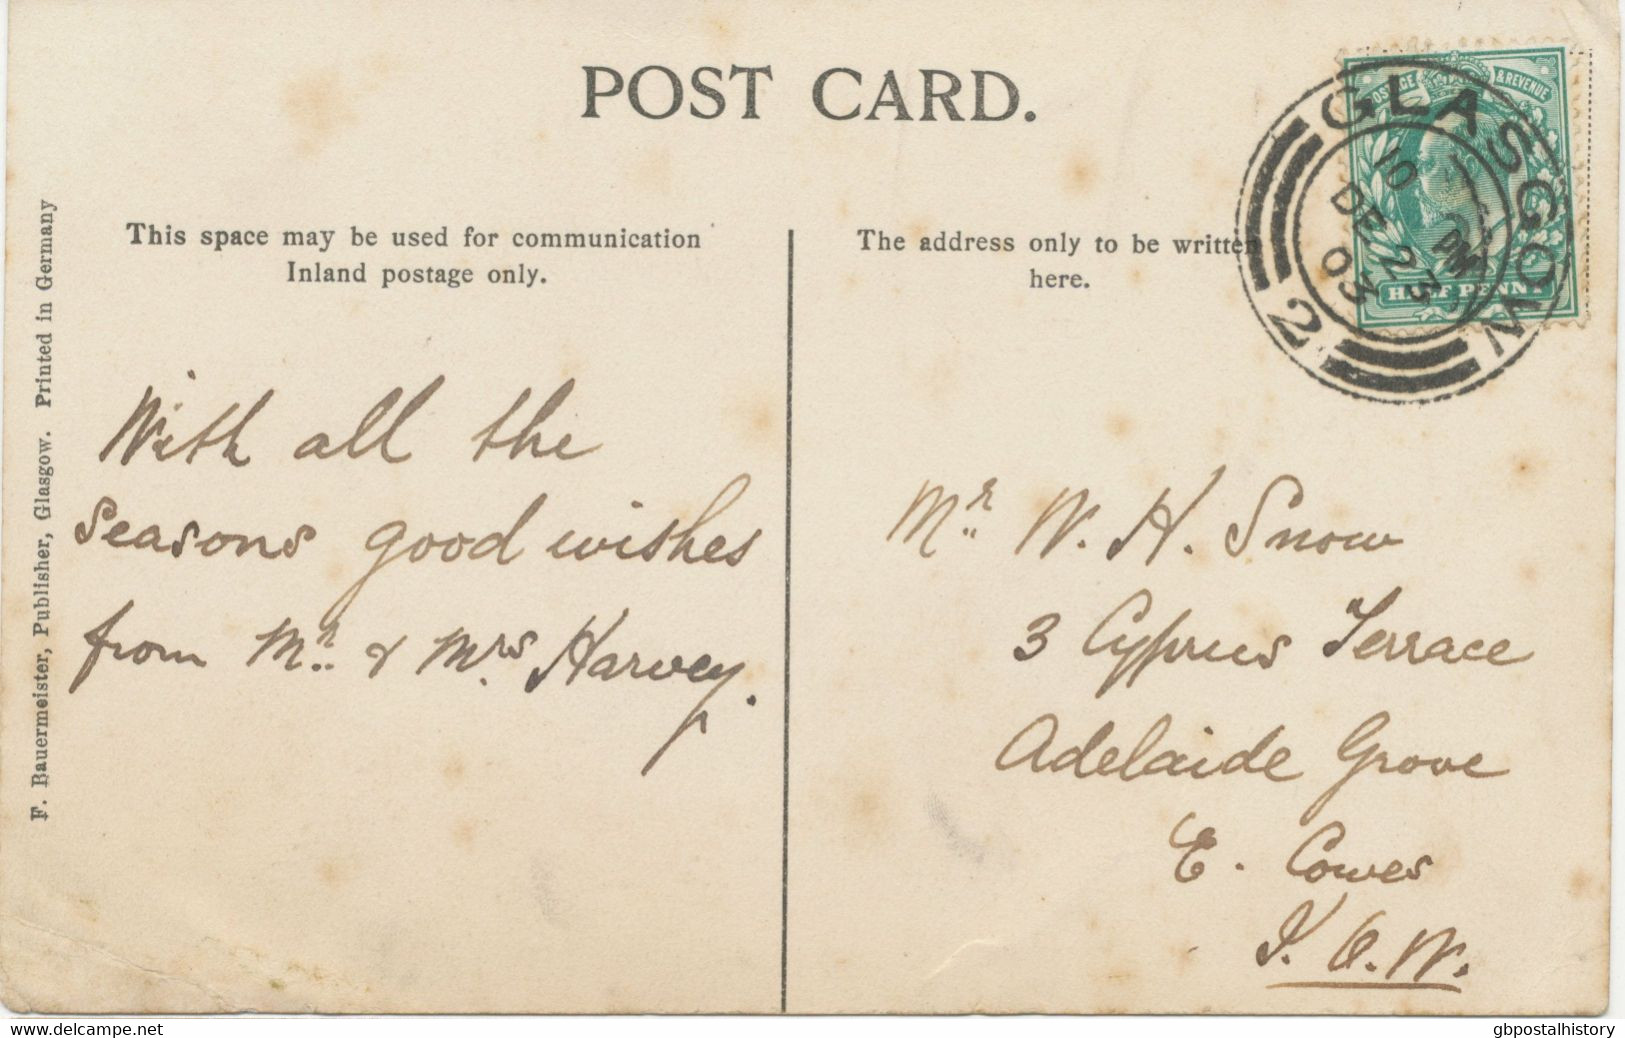 POST CARD.
POSTAGE & REVENUE
HALF PENNY
GLASGOW
10 PM
DE 23
03
2
This space may be used for communication
Inland postage only.
The address only to be written
here.
F. Bauermeister, Publisher, Glasgow. Printed in Germany
With all the
seasons good wishes
from Mr. & Mrs Harvey.
Mr. W. H. Snow
3 Cyprus Terrace
Adelaide Grove
E. Cowes
I. O. W.
delcampe.net
gbpostalhistory